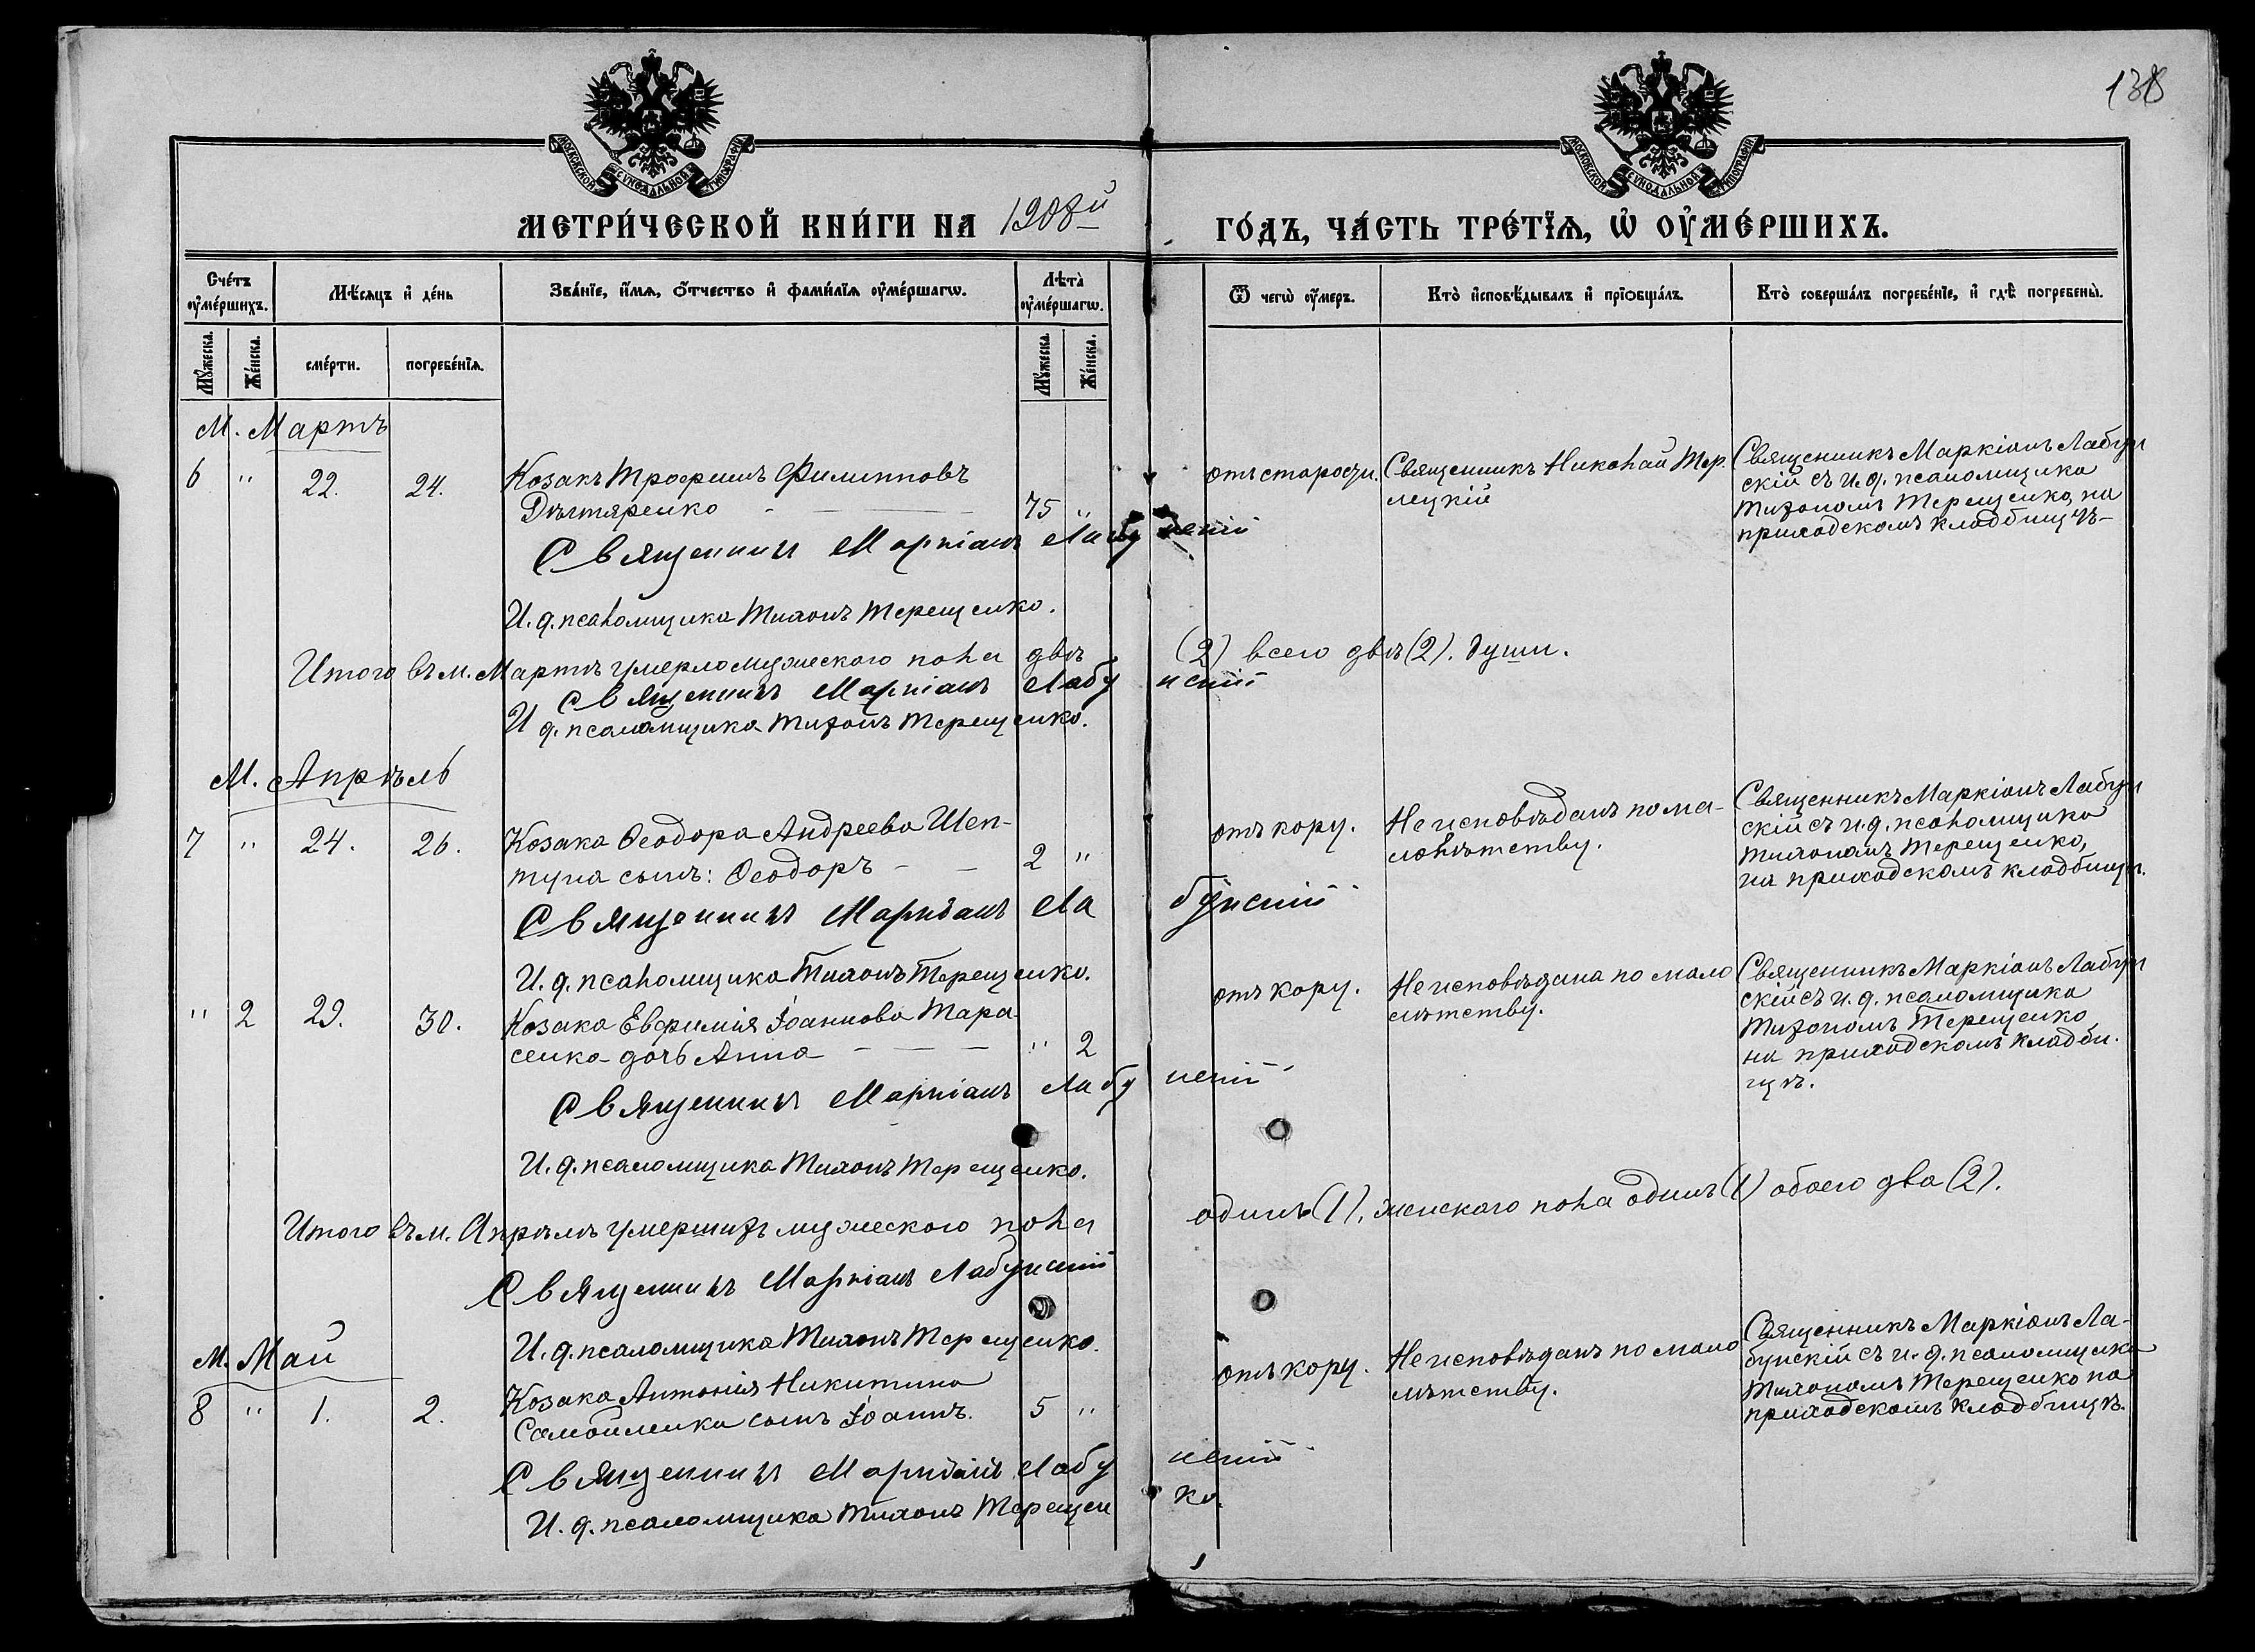 138
МОСКОВСКОЙ СѴНОДАЛЬНОЙ ТИПОГРАФІИ
МОСКОВСКОЙ СѴНОДАЛЬНОЙ ТИПОГРАФІИ
МЕТРИ́ЧЕСКОЙ КНИ́ГИ НА 1908й ГО́ДЪ, ЧА́СТЬ ТРЕ́ТЇѦ, Ѡ҆ ОУ҆МЕ́РШИХЪ.
Сче́тъ оу҆ме́ршихъ.
Мѣ́сяцъ и҆ де́нь
Зва́нїе, и҆́мѧ, ѻ҆́тчество и҆ фами́лїѧ оу҆ме́ршагѡ.
Лѣта̀ оу҆ме́ршагѡ.
Ѿ чегѡ̀ оу҆́меръ.
Кто̀ и҆сповѣ́дывалъ и҆ прїѻбща́лъ.
Кто̀ соверша́лъ погребе́нїе, и҆ гдѣ̀ погребены̀.
Мꙋ́жеска. Же́нска. сме́рти. погребе́нїѧ. Мꙋ́жеска. Же́нска.
М. Мартъ
6 " 22. 24. Козакъ Трофимъ Филипповъ
Дѣгтяренко 75 "
отъ старости.
Священникъ Николай Тер.
лецкій
Священникъ Маркіанъ Лабун
скій съ и. д. псаломщика
Тихономъ Терещенко, на
приходскомъ кладбищѣ
Священникъ Маркіанъ Лабунскій
И. д. псаломщика Тихонъ Терещенко.
Итого въ м. Мартѣ умерло мужескаго пола двѣ (2) всего двѣ (2). души.
Священникъ Маркіанъ Лабунскій
И д. псаломщика Тихонъ Терещенко.
М. Апрѣль
7 " 24. 26. Козака Ѳеодора Андреева Шеп-
туна сынъ: Ѳеодоръ 2 "
отъ кору.
Не исповѣданъ по ма-
лолѣтству.
Священникъ Маркіанъ Лабун
скій съ и. д. псаломщика
Тихономъ Терещенко,
на приходскомъ кладбищѣ.
Священникъ Маркіанъ Лабунскій
И. д. псаломщика Тихонъ Терещенко.
" 2 29. 30. Козака Евфимія Іоаннова Тара-
сенка дочь Анна " 2
отъ кору.
Не исповѣдана по мало
лѣтству.
Священникъ Маркіанъ Лабун
скій съ и. д. псаломщика
Тихономъ Терещенко
на приходскомъ кладби.
щѣ.
Священникъ Маркіанъ Лабунскій
И. д. псаломщика Тихонъ Терещенко.
Итого въ м. Апрѣлѣ умершихъ мужеского пола одинъ (1), женскаго пола одинъ (1) обоего два (2).
Священникъ Маркіанъ Лабунскій
И. д. псаломщика Тихонъ Терещенко.
М. Май
8 " 1. 2. Козака Антонія Никитина
Самойленка сынъ Іоаннъ. 5 "
отъ кору.
Не исповѣданъ по мало
лѣтству.
Священникъ Маркіанъ Ла-
бунскій съ и. д. псаломщика
Тихономъ Терещенко на
приходскомъ кладбищѣ.
Священникъ Маркіанъ Лабунскій
И. д. псаломщика Тихонъ Терещенко.